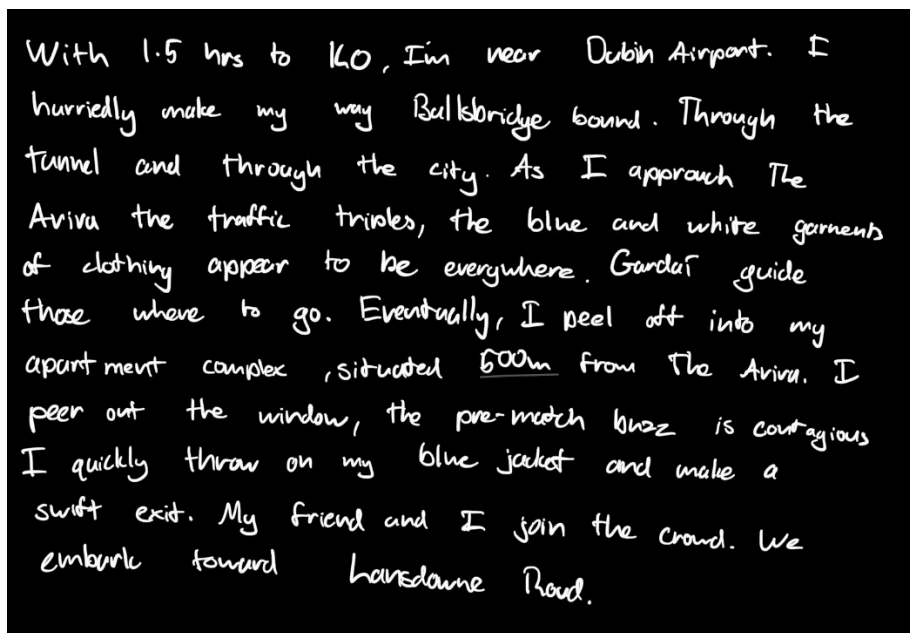 With 1.5 hrs to KO, I'm near Dubin Airport. I
hurriedly make my way Ballsbridge bound. Through the
tunnel and through the city. As I approach The
Aviva the traffic triples, the blue and white garments
of clothing appear to be everywhere. Gardaí guide
those where to go. Eventually, I peel off into my
apartment complex, situated 600m from The Aviva. I
peer out the window, the pre-match buzz is contagious
I quickly throw on my blue jacket and make a
swift exit. My friend and I join the crowd. We
embark toward Lansdowne Road.